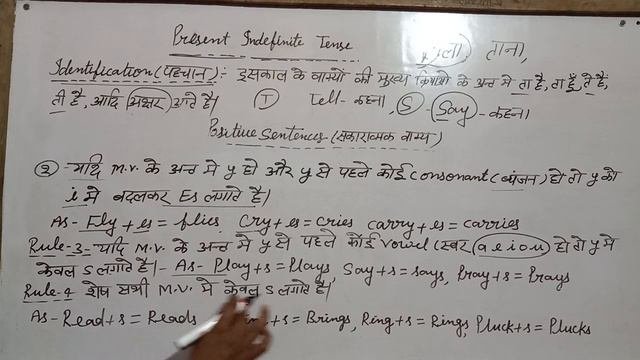 Present Indefinite Tense
ताना,
Identification (पहचान):- इसकाल के वाक्यों की मुख्य क्रियाओं के अन्त में ता है, ता हूँ, ते हैं,
ती है, आदि अक्षर आते हैं। T Tell - कहना, S Say - कहना।
Positive Sentences (सकारात्मक वाक्य)
2 - यदि M.V. के अन्त में y हो और y से पहले कोई consonant (व्यंजन) हो तो y को
i में बदलकर Es लगाते हैं।
As - Fly + es = flies, Cry + es = cries carry + es = carries
Rule-3- यदि M.V. के अन्त में y से पहले कोई Vowel (स्वर (a e i o u) हो तो y में
केवल s लगाते हैं। - As - Play + s = Plays, Say + s = says, Pray + s = Prays
Rule-4 शेष सभी M.V. में केवल s लगाते हैं।
As - Read + s = Reads + s = Brings, Ring + s = Rings, Pluck + s = Plucks